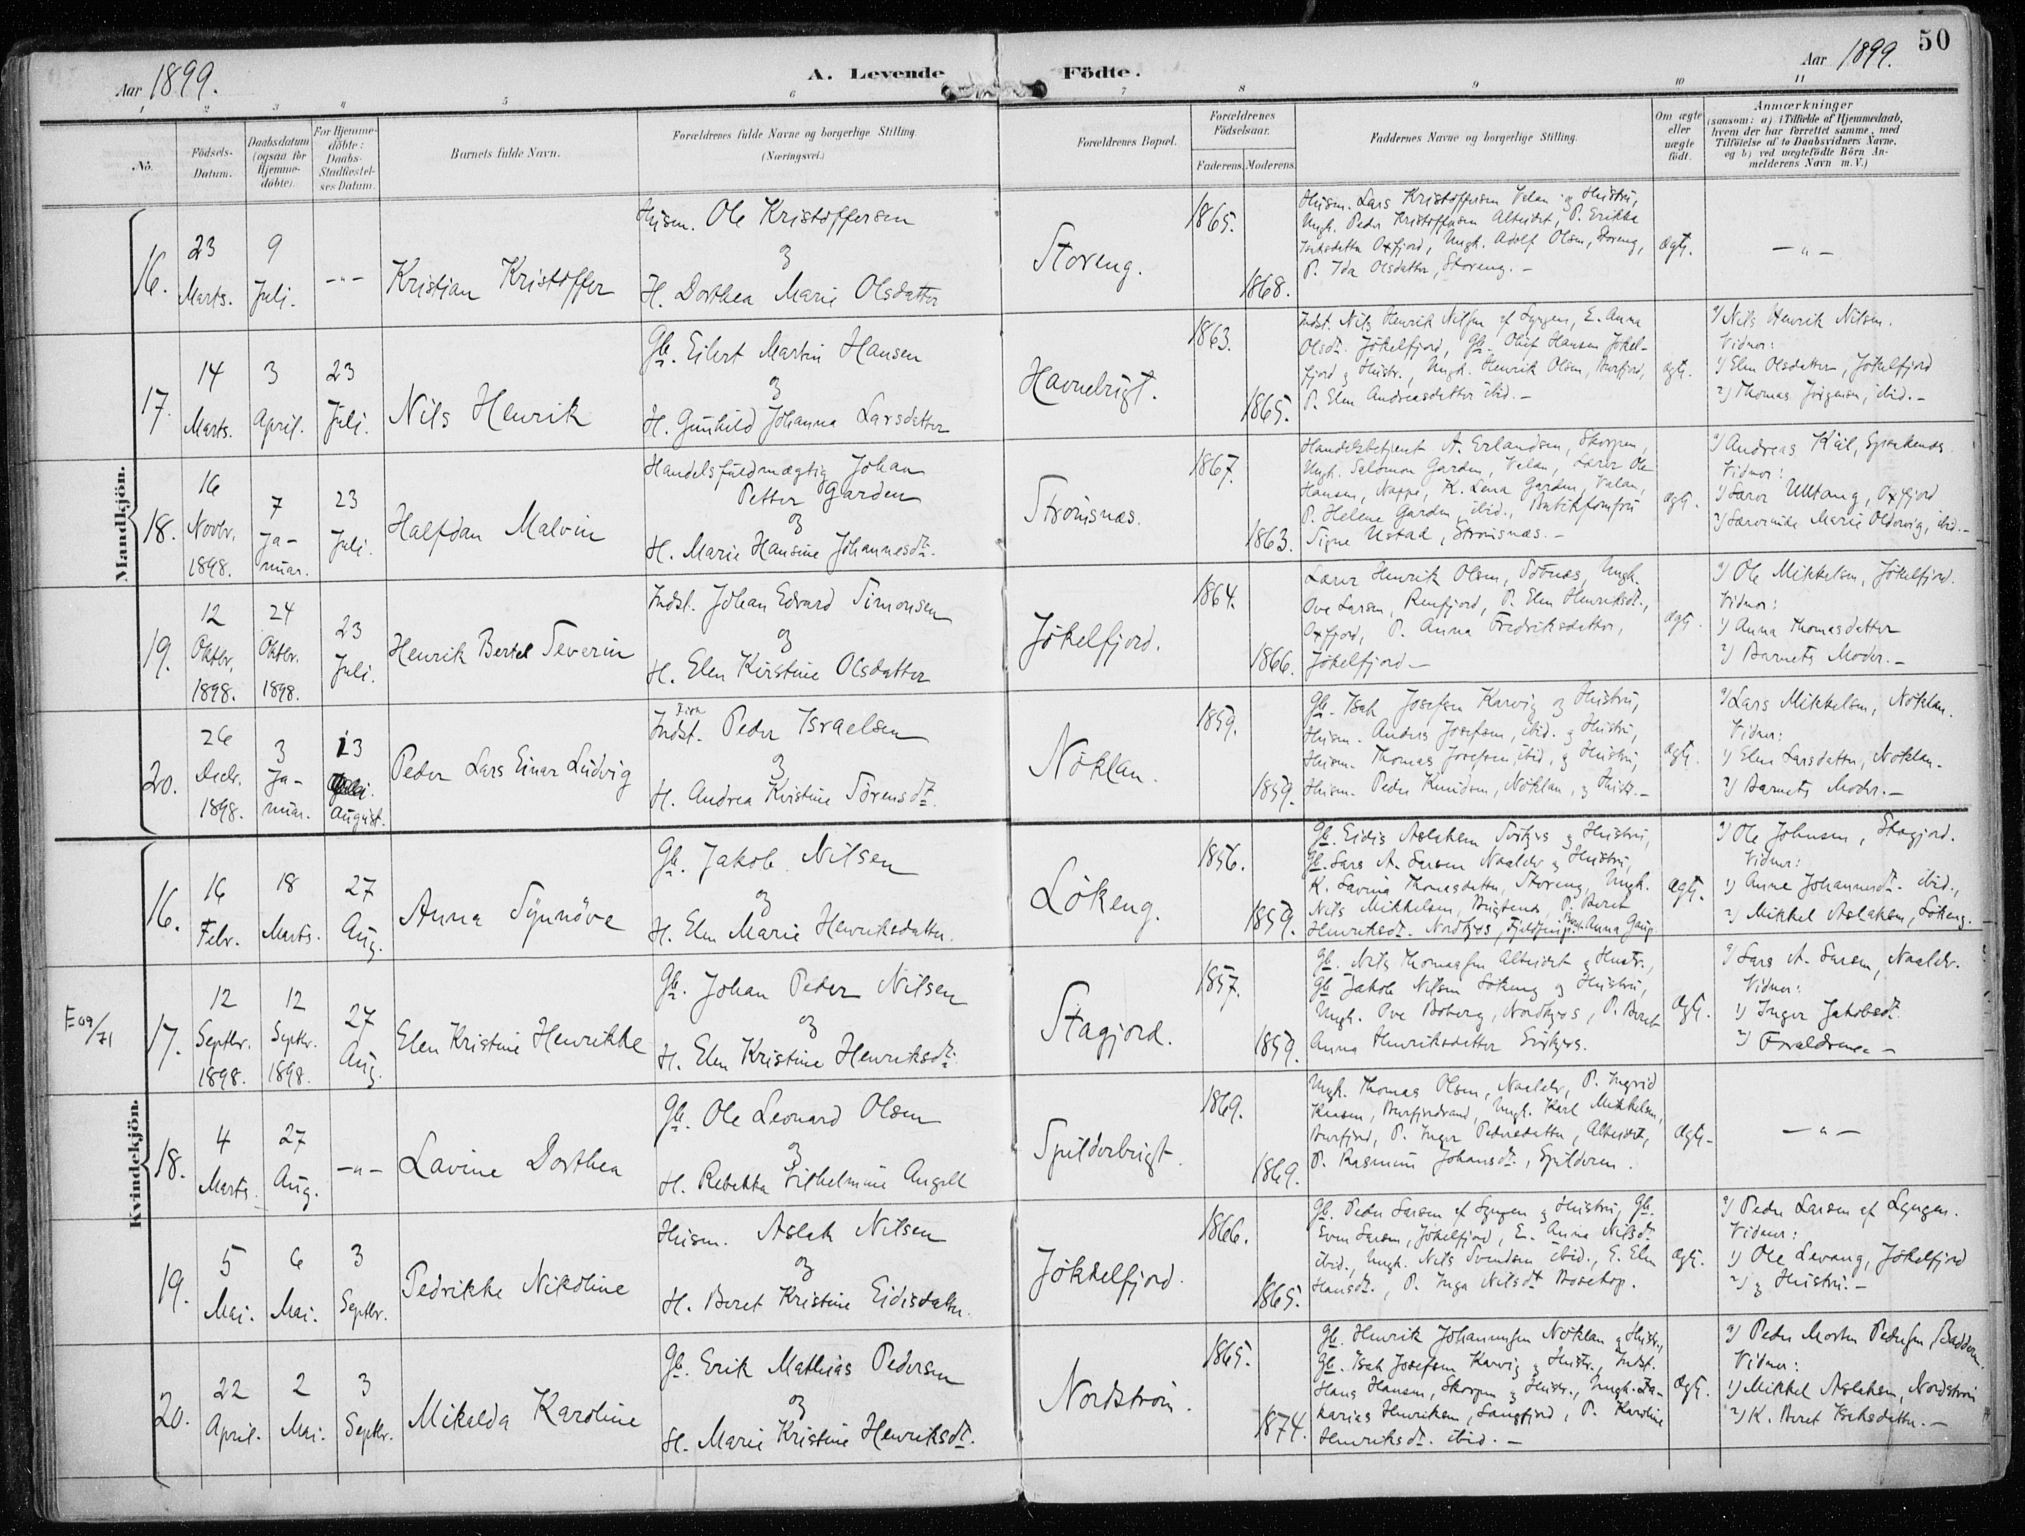 50
Aar 1899. A. Levende Födte. Aar 1899.
1 2 3 4 5 6 7 8 9 10 11
No.
Födsels-
Datum.
Daabsdatum
(ogsaa for
Hjemme-
döbte).
For Hjemme-
döbte:
Daabs-
Stadfæstel-
ses Datum.
Barnets fulde Navn.
Forældrenes fulde Navne og borgerlige Stilling.
(Næringsvei.)
Forældrenes Bopæl.
Forældrenes
Födselsaar.
Faderens. Moderens.
Faddernes Navne og borgerlige Stilling.
Om ægte
eller
uægte
født.
Anmærkninger
(saasom: a) i Tilfælde af Hjemmedaab,
hvem der har forrettet samme, med
Tilföielse af to Daabsvidners Navne,
og b) ved uægtefödte Börn An-
melderens Navn m. V.)
Mandkjön.
16.
23
Marts.
9
Juli.
-"-
Kristian Kristoffer
Husm. Ole Kristoffersen
og
H. Dorthea Marie Olsdatter
Storeng.
1865.
1868.
Husm. Lars Kristoffersen Valan og Hustru,
Ungk. Peder Kristoffersen Alteidet, P. Erikka
Isaksdatter Oxfjord, Ungk. Adolf Olsen, Storeng,
P. Ida Olsdatter, Storeng. -
ægt.
-"-
17.
14
Marts.
3
April.
23
Juli.
Nils Henrik
Gb. Eilert Martin Hansen
og
H. Gunhild Johanna Larsdatter
Havnebugt.
1863.
1865.
Indst. Nils Henrik Nilsen af Lyngen, E. Anna
Olsdt. Jökelfjord, Gb. Oluf Hansen Jökel-
fjord og Hustr., Ungk. Henrik Olsen, Burfjord,
P. Elen Andreasdatter ibid. -
ægt.
a) Nils Henrik Nilsen.
Vidner:
1) Elen Olsdatter, Jökelfjord
2) Thomas Jörgensen, ibid. -
18.
16
Novbr.
1898.
7
Ja-
nuar.
23
Juli.
Halfdan Malvin
Handelsfuldmægtig Johan
Petter Garden
og
H. Marie Hansine Johannesdt.
Strömsnæs.
1867.
1863.
Handelsbetjent A. Erlandsen, Skorpen,
Ungk. Salomon Garden, Valan, Lærer Ole
Hansen, Nappe, K. Lena Garden, Valan,
P. Helene Garden, ibid., Butikjomfru
Signe Ustad, Strömsnæs. -
ægt.
a) Andreas Kiil, Spirkenæs
Vidner:
1) Lærer Ulltang, Oxfjord
2) Lærerinde Marie Oldervig, ibid. -
19.
12
Oktbr.
1898.
24
Oktbr.
1898.
23
Juli.
Henrik Bertel Severin
Indst. Johan Edvard Simonsen
og
H. Elen Kirstine Olsdatter
Jökelfjord.
1864.
1866.
Lærer Henrik Olsen, Sötnæs, Ungk.
Ove Larsen, Reinfjord, P. Elen Henriksdt.,
Oxfjord, P. Anna Fredriksdatter,
Jökelfjord -
ægt.
a) Ole Mikkelsen, Jökelfjord.
Vidner:
1) Anna Thomasdatter
2) Barnets Moder. -
20.
26
Decbr.
1898.
3
Ja-
nuar.
13
August.
Peder Lars Einar Ludvig
Indst. Peder Israelsen
og
H. Andrea Kristine Sörensdt.
Nöklan.
1859.
1859.
Gb. Isak Josefsen Karvig og Hustru,
Husm. Anders Josefsen, ibid. og Hustru,
Husm. Thomas Josefsen, ibid. og Hustru,
Husm. Peder Knudsen, Nöklan, og Hustr. -
ægt.
a) Lars Mikkelsen, Nöklan.
Vidner:
1) Elen Larsdatter, Nöklan.
2) Barnets Moder. -
Kvindekjön.
16.
16
Febr.
18
Marts.
27
Aug.
Anna Synnöve
Gb. Jakob Nilsen
og
H. Elen Marie Henriksdatter.
Lökeng.
1856.
1859.
Gb. Eidis Aslaksen Sörkjos og Hustru,
Gb. Lars A. Larsen Naalelv og Hustru,
K. Lavina Thomasdatter, Storeng, Ungk.
Nils Mikkelsen, P. Beret
Henriksdt. Nordkjos, Anna Gaup
ægt.
a) Ole Johnsen, Stagjord.
Vidner:
1) Anne Johannesdt. ibid.,
2) Mikkel Aslaksen, Lökeng.
E 09/71
17.
12
Septbr.
1898.
12
Septbr.
1898.
27
Aug.
Elen Kristine Henrikke
Gb. Johan Peder Nilsen
og
H. Elen Kristine Henriksdt.
Stagjord.
1857.
1859.
Gb. Nils Thomassen Alteidet og Hustr.,
Gb. Jakob Nilsen Lökeng og Hustru,
Ungk. Ove Boberg, Nordkjos, P. Beret
Anna Henriksdatter Sörkjos.
ægt.
a) Lars A. Larsen, Naalelv.
Vidner:
1) Inger Jakobsdt.
2) Forældrene -
18.
4
Marts.
27
Aug.
-"-
Lavine Dorthea
Gb. Ole Leonard Olsen
og
H. Rebekka Vilhelmine Angell
Spilderbugt.
1869.
1869.
Ungk. Thomas Olsen, Naalelv, P. Ingrid
Kaasen, Burfjordsand, Ungk. Karl Mikkelsen,
Burfjord, P. Inger Pedersdatter, Alteidet,
P. Rasmine Johansdt., Spilderen.
ægt.
-"-
19.
5
Mai.
6
Mai.
3
Septbr.
Pedrikke Nikoline
Husm. Aslak Nilsen
og
H. Beret Kristine Eidisdatter.
Jökkelfjord.
1866.
1865.
Gb. Peder Larsen af Lyngen og Hustru, Gb.
Even Larsen, Jökelfjord, E. Anna Nilsdt.
ibid., Ungk. Nils Svendsen ibid., E. Elen
Hansdt., P. Inga Nilsdt. Bosekop.
ægt.
a) Peder Larsen af Lyngen.
Vidner:
1) Ole Levang, Jökelfjord
2) og Hustru. -
20.
22
April.
2
Mai.
3
Septbr.
Mikalda Karoline
Gb. Erik Mathias Pedersen
og
H. Marie Kristine Henriksdt.
Nordström.
1865.
1874.
Gb. Henrik Johannesen Nöklan og Hustr.,
Gb. Isak Josefsen Karvig og Hustr., Indst.
Hans Hansen, Skorpen og Hustr., Ungk. Za-
karias Henriksen, Langfjord, P. Karoline
Henriksdt. ibid. -
ægt.
a) Peder Morten Pedersen, Badderen.
Vidner:
1) Mikkel Aslaksen, Nordström
2) K. Beret Isaksdatter. -